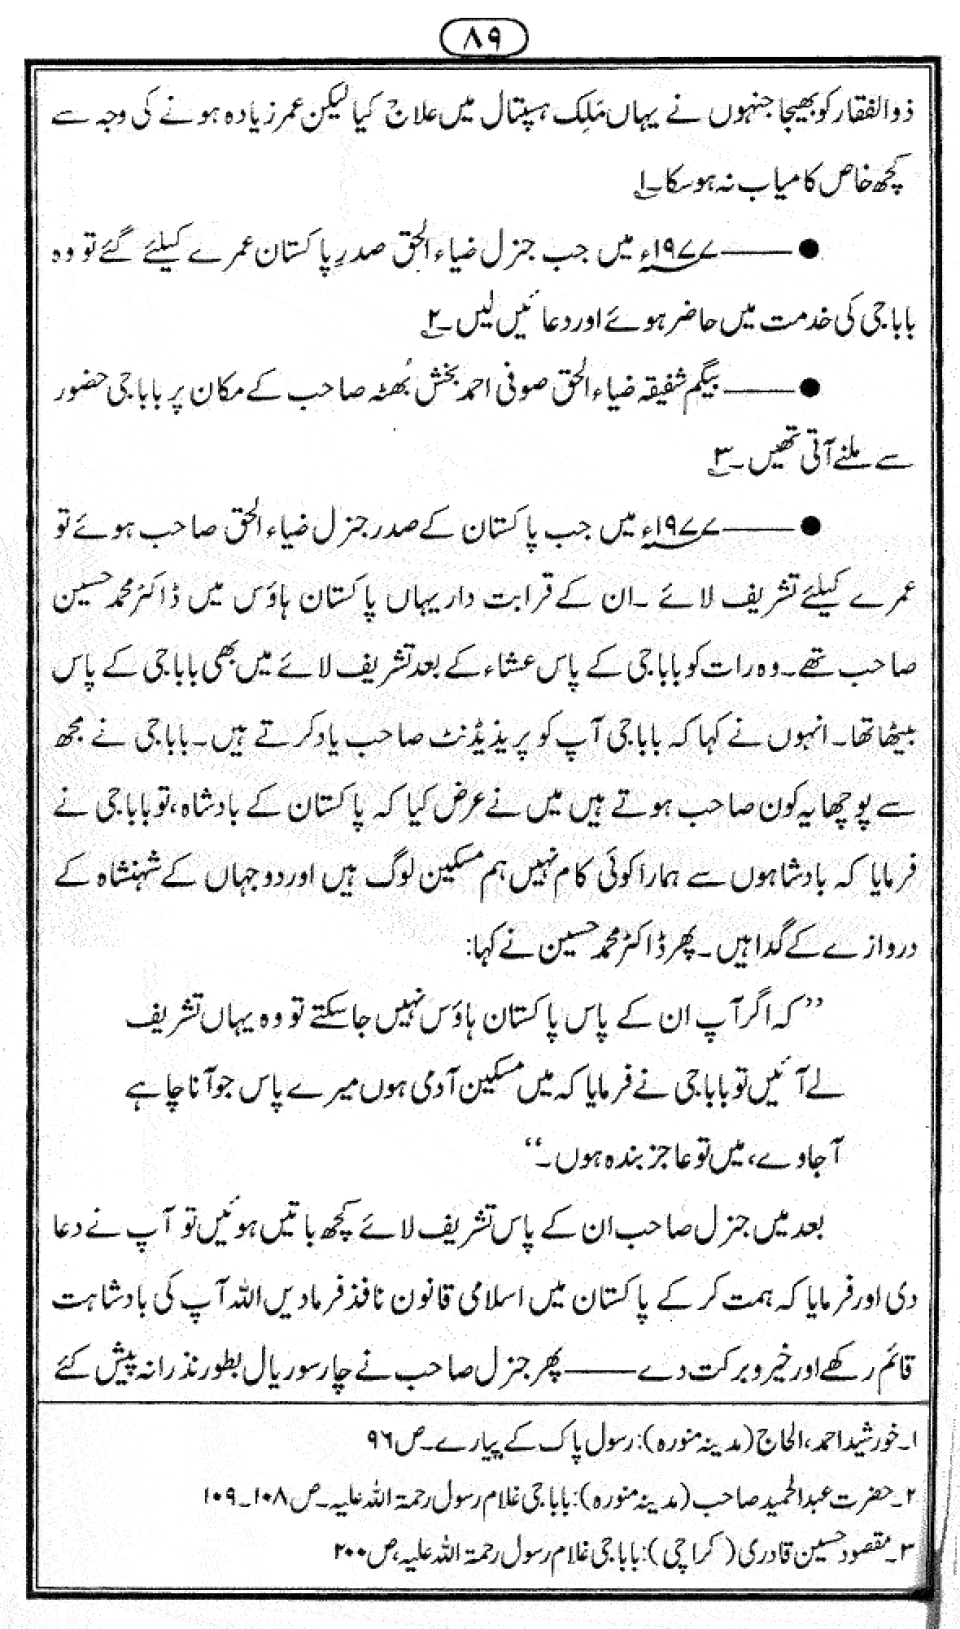 ۸۹
ذوالفقار کو بھیجا جنہوں نے یہاں مَلِک ہسپتال میں علاج کیا لیکن عمر زیادہ ہونے کی وجہ سے
کچھ خاص کامیاب نہ ہو سکا۔۱
●——— ۱۹۷۷ء میں جب جنرل ضیاء الحق صدرِ پاکستان عمرے کیلئے گئے تو وہ
بابا جی کی خدمت میں حاضر ہوئے اور دعائیں لیں۔۲
●——— بیگم شفیقہ ضیاء الحق صوفی احمد بخش بُھٹہ صاحب کے مکان پر بابا جی حضور
سے ملنے آتی تھیں۔۳
●——— ۱۹۷۷ء میں جب پاکستان کے صدر جنرل ضیاء الحق صاحب ہوئے تو
عمرے کیلئے تشریف لائے۔ ان کے قرابت دار یہاں پاکستان ہاؤس میں ڈاکٹر محمد حسین
صاحب تھے۔ وہ رات کو بابا جی کے پاس عشاء کے بعد تشریف لائے میں بھی بابا جی کے پاس
بیٹھا تھا۔ انہوں نے کہا کہ بابا جی آپ کو پریذیڈنٹ صاحب یاد کرتے ہیں۔ بابا جی نے مجھ
سے پوچھا یہ کون صاحب ہوتے ہیں میں نے عرض کیا کہ پاکستان کے بادشاہ، تو بابا جی نے
فرمایا کہ بادشاہوں سے ہمارا کوئی کام نہیں ہم مسکین لوگ ہیں اور دو جہاں کے شہنشاہ کے
دروازے کے گدا ہیں۔ پھر ڈاکٹر محمد حسین نے کہا:
’’کہ اگر آپ ان کے پاس پاکستان ہاؤس نہیں جا سکتے تو وہ یہاں تشریف
لے آئیں تو بابا جی نے فرمایا کہ میں مسکین آدمی ہوں میرے پاس جو آنا چاہے
آ جاوے، میں تو عاجز بندہ ہوں۔‘‘
بعد میں جنرل صاحب ان کے پاس تشریف لائے کچھ باتیں ہوئیں تو آپ نے دعا
دی اور فرمایا کہ ہمت کر کے پاکستان میں اسلامی قانون نافذ فرما دیں اللہ آپ کی بادشاہت
قائم رکھے اور خیر و برکت دے——— پھر جنرل صاحب نے چار سو ریال بطور نذرانہ پیش کئے
۱۔ خورشید احمد، الحاج (مدینہ منورہ): رسول پاک کے پیارے۔ ص ۹۶
۲۔ حضرت عبدالحمید صاحب (مدینہ منورہ): بابا جی غلام رسول رحمۃ اللہ علیہ۔ ص ۱۰۸۔۱۰۹
۳۔ مقصود حسین قادری (کراچی): بابا جی غلام رسول رحمۃ اللہ علیہ، ص ۲۰۰